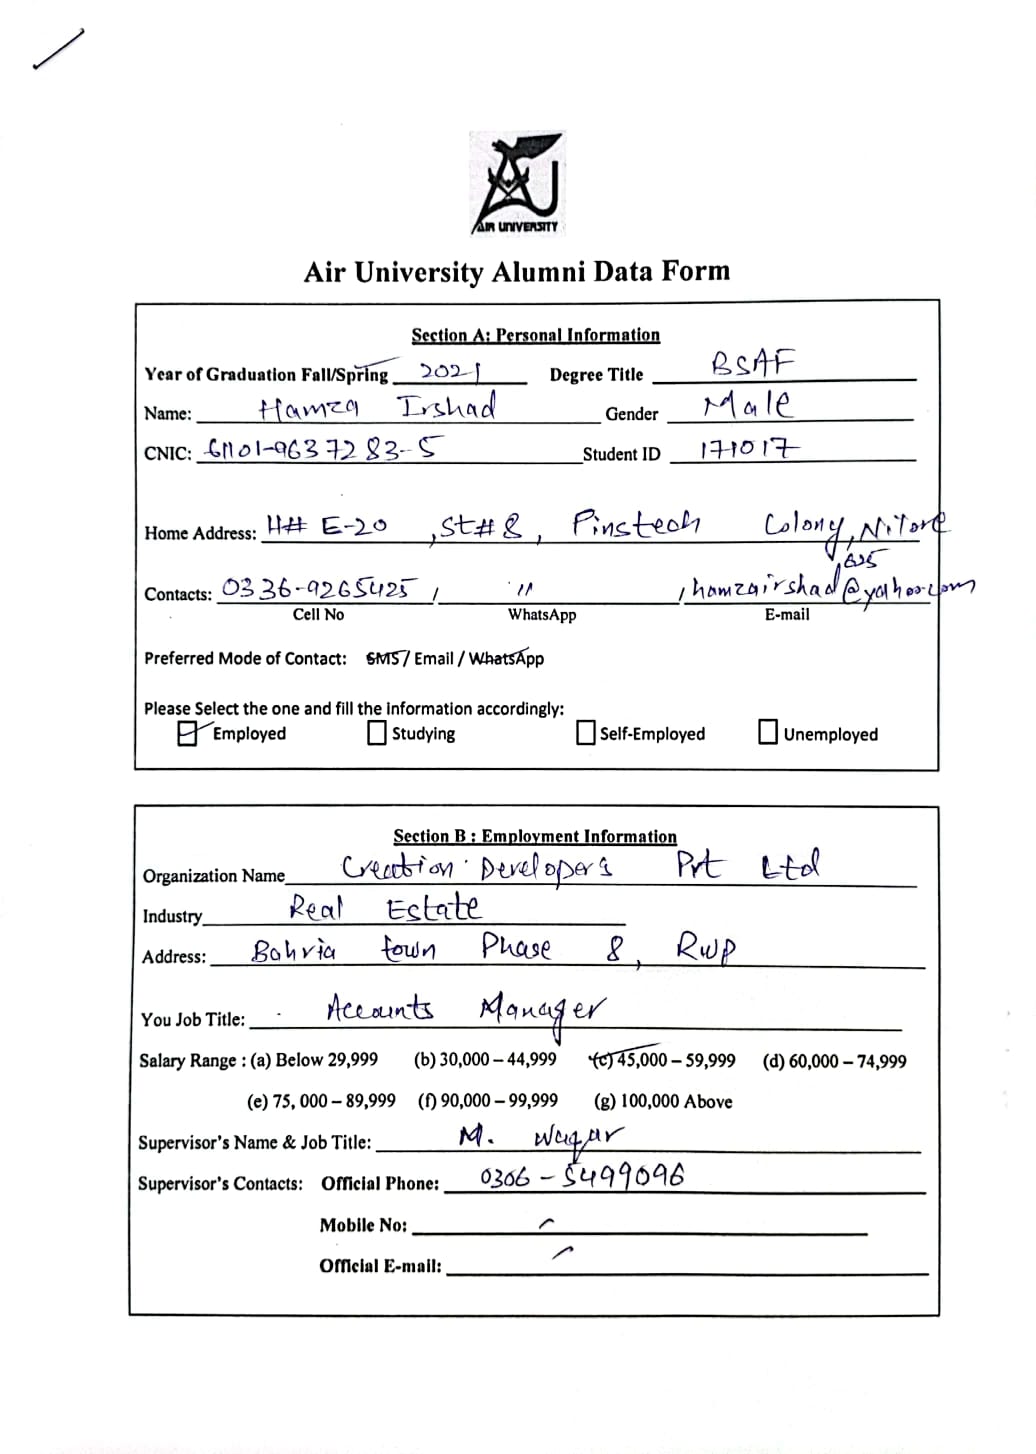 AIR UNIVERSITY
Air University Alumni Data Form
Section A: Personal Information
Year of Graduation Fall/Spring 2021 Degree Title BSAF
Name: Hamza Irshad Gender Male
CNIC: 61101-9637283-5 Student ID 171017
Home Address: H# E-20, St# 8, Pinstech Colony, Nilore
Contacts: 0336-9265425 / " / hamzairshad625@yahoo.com
Cell No WhatsApp E-mail
Preferred Mode of Contact: SMS / Email / WhatsApp
Please Select the one and fill the information accordingly:
Employed Studying Self-Employed Unemployed
Section B : Employment Information
Organization Name Creation Developers Pvt Ltd
Industry Real Estate
Address: Bahria town Phase 8, RWP
You Job Title: Accounts Manager
Salary Range : (a) Below 29,999 (b) 30,000 – 44,999 (c) 45,000 – 59,999 (d) 60,000 – 74,999
(e) 75, 000 – 89,999 (f) 90,000 – 99,999 (g) 100,000 Above
Supervisor's Name & Job Title: M. Waqar
Supervisor's Contacts: Official Phone: 0306-5499096
Mobile No: -
Official E-mail: -